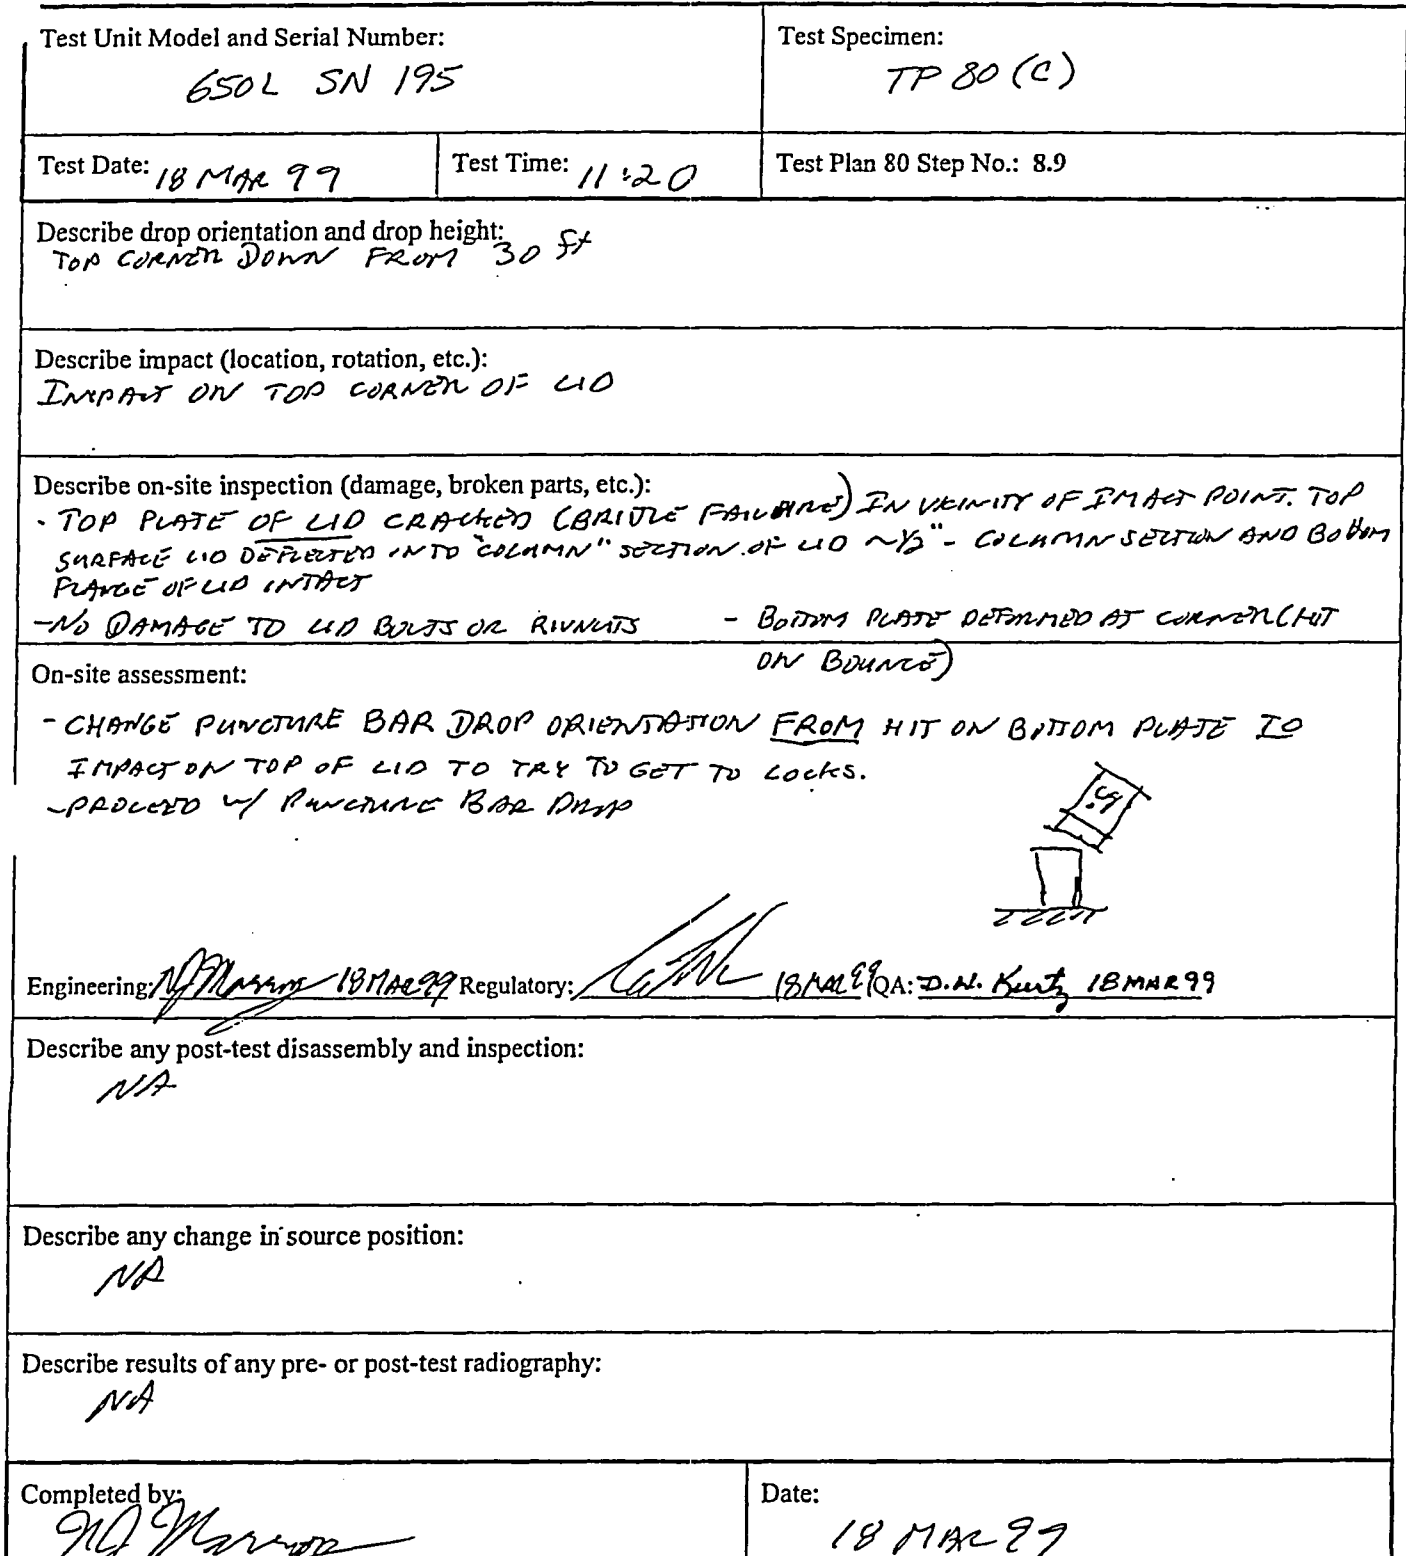 Test Unit Model and Serial Number:
650L SN 195
Test Specimen:
TP 80 (C)
Test Date: 18 MAR 99
Test Time: 11:20
Test Plan 80 Step No.: 8.9
Describe drop orientation and drop height:
TOP CORNER DOWN FROM 30 ft
Describe impact (location, rotation, etc.):
IMPACT ON TOP CORNER OF LID
Describe on-site inspection (damage, broken parts, etc.):
- TOP PLATE OF LID CRACKED (BRITTLE FAILURE) IN VICINITY OF IMPACT POINT. TOP
SURFACE LID DEFLECTED INTO "COLUMN" SECTION OF LID ~1/2" - COLUMN SECTION AND BOTTOM
FLANGE OF LID INTACT
- NO DAMAGE TO LID BOLTS OR RIVNUTS - BOTTOM PLATE DEFORMED AT CORNER (HIT
ON BOUNCE)
On-site assessment:
- CHANGE PUNCTURE BAR DROP ORIENTATION FROM HIT ON BOTTOM PLATE TO
IMPACT ON TOP OF LID TO TRY TO GET TO LOCKS.
- PROCEED W/ PUNCTURE BAR DROP
Engineering: 18 MAR 99 Regulatory: 18 MAR 99 QA: D.W. Kurtz 18 MAR 99
Describe any post-test disassembly and inspection:
NA
Describe any change in source position:
NA
Describe results of any pre- or post-test radiography:
NA
Completed by:
Date:
18 MAR 99